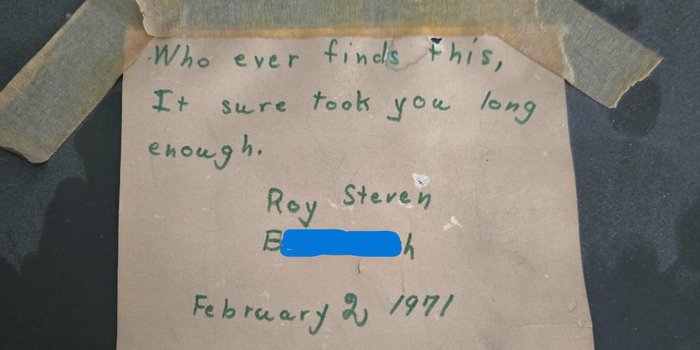 Who ever finds this,
It sure took you long
enough.
Roy Steven
B h
February 2, 1971